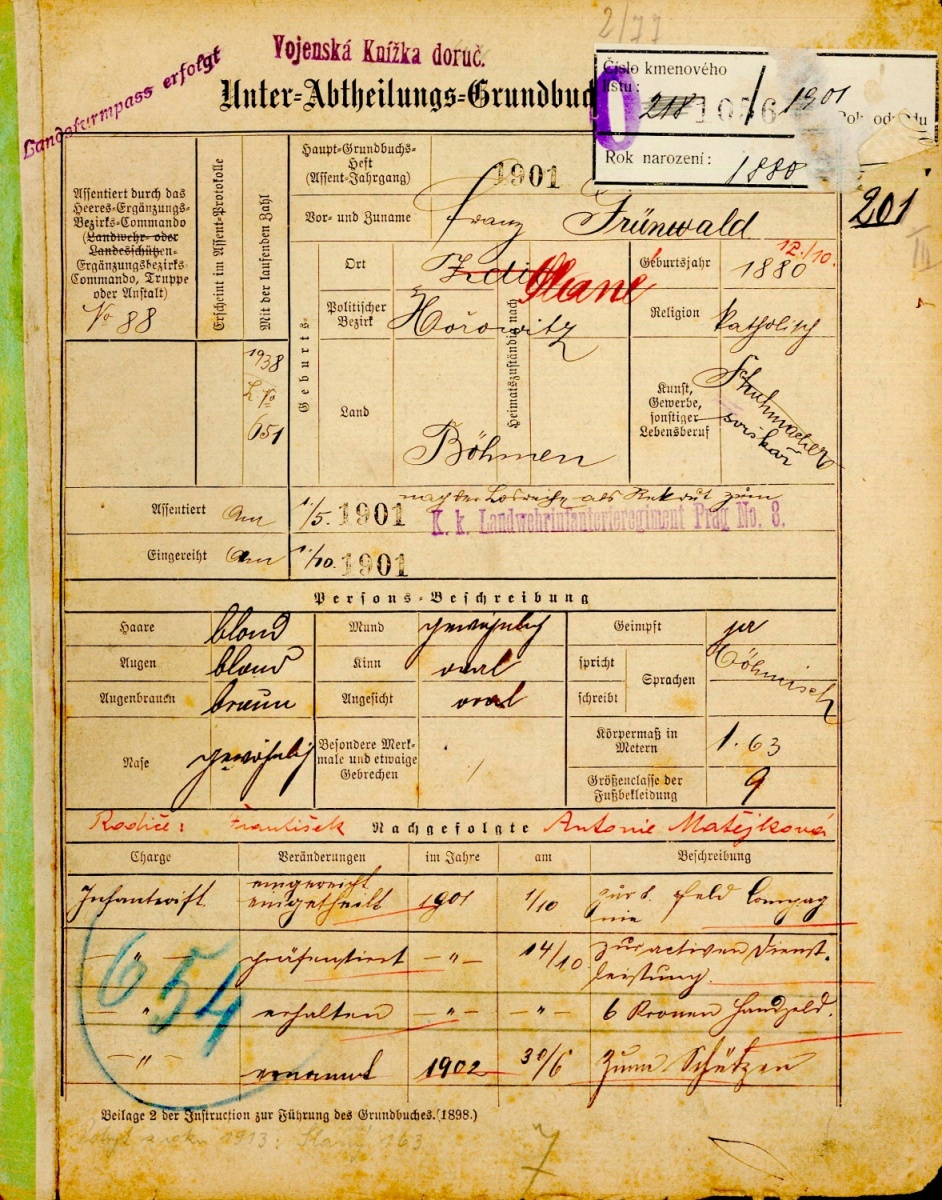 2/77
Vojenská Knížka doruč.
Landsturmpass erfolgt
Unter-Abtheilungs-Grundbuch
Číslo kmenového
listu:
218 1056 / 1901
Rok odvodu
Rok narození: 1880
201
Assentiert durch das
Heeres-Ergänzungs-
Bezirks-Commando
(Landwehr- oder
Landesschützen-
Ergänzungsbezirks-
Commando, Truppe
oder Anstalt)
No 88
Erscheint im Assent-Protokolle
Mit der laufenden Zahl
1938
L. No
651
Haupt-Grundbuchs-
Heft
(Assent-Jahrgang)
1901
Vor- und Zuname
Franz Grünwald
Geburts-
Ort
Slané
Politischer
Bezirk
Hořowitz
Land
Böhmen
Heimatszuständig nach
Geburtsjahr
12./10.
1880
Religion
katholisch
Kunst,
Gewerbe,
sonstiger
Lebensberuf
Schuhmacher
Assentiert am 1/5. 1901 nach der Losreihe als Rekrut zum
K. k. Landwehrinfanterieregiment Prag No. 8.
Eingereiht am 1/10. 1901
Persons-Beschreibung
Haare blond
Augen blau
Augenbrauen braun
Nase gewöhnlich
Mund gewöhnlich
Kinn oval
Angesicht oval
Besondere Merk-
male und etwaige
Gebrechen /
Geimpft ja
spricht
schreibt
Sprachen
Böhmisch
Körpermaß in
Metern
1.63
Größenclasse der
Fußbekleidung
9
Rodiče: František Nachgefolgte Antonie Matějková
Charge Veränderungen im Jahre am Beschreibung
Infanterist eingereiht
eingetheilt 1901 1/10 zur 8. Feld Compag
nie
" präsentiert " 14/10 zur activen Dienst-
leistung.
" erhalten " " 6 Kronen Handgeld.
" ernannt 1902 30/6 Zum Schützen
654
Beilage 2 der Instruction zur Führung des Grundbuches. (1898.)
1913: Slaný 163
7